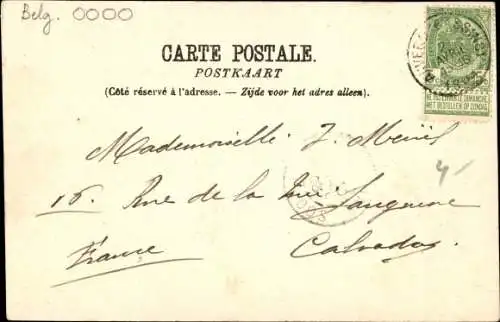 Belg. 0000
CARTE POSTALE.
POSTKAART
(Côté réservé à l'adresse. — Zijde voor het adres alleen).
NE PAS LIVRER LE DIMANCHE
NIET BESTELLEN OP ZONDAG
Mademoiselle J. Meriel
16. Rue de la
France Calvados.
4/-